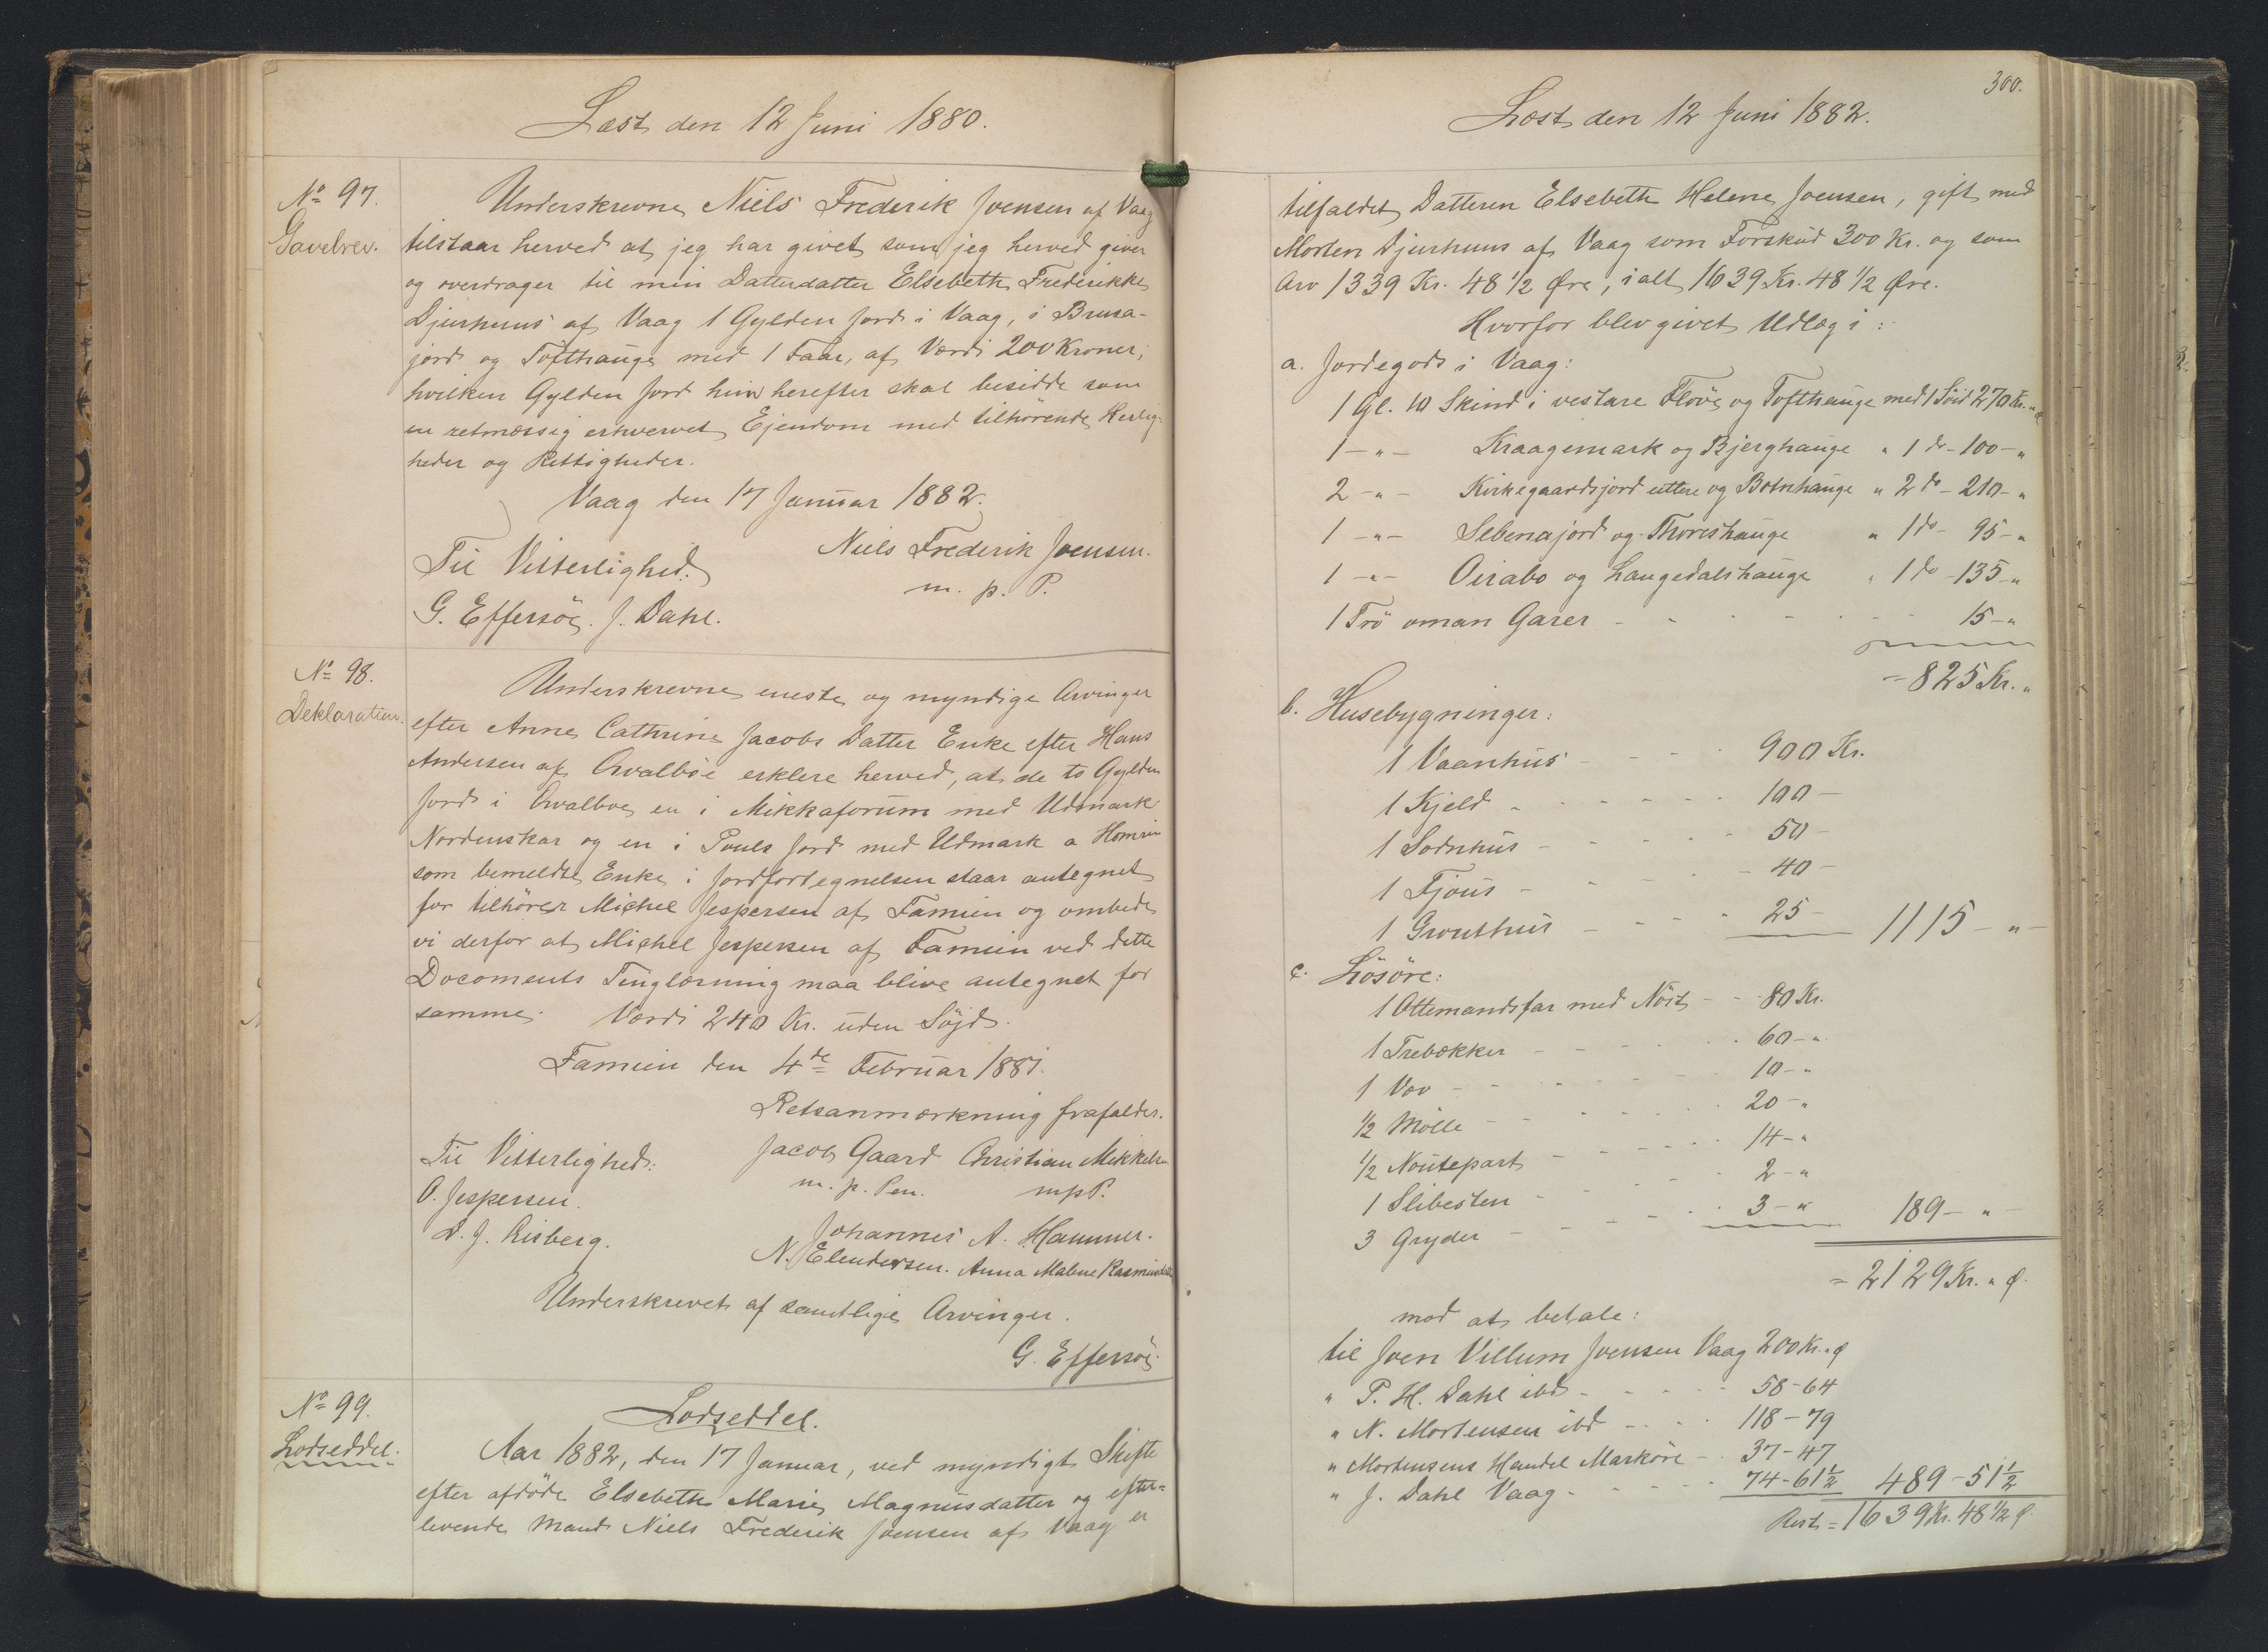 Læst den 12 Juni 1880.
No 97.
Gavebrev.
Underskrevne Niels Frederik Joensen af Vaag
tilstaar herved at jeg har givet som jeg herved giver
og overdrager til min Datterdatter Elsebeth Frederikke
Djurhuus af Vaag 1 Gylden Jord i Vaag, i Brusa-
jord og Tofthauge med 1 Faar, af Værdi 200 Kroner,
hvilken Gylden Jord hun herefter skal besidde som
en retmæssig erhvervet Ejendom med tilhörende Herlig-
heder og Rettigheder.
Vaag den 17 Januar 1882.
Til Vitterlighed:
Niels Frederik Joensen.
m. p. P.
G. Effersöe. J. Dahl.
No 98.
Deklaration.
Underskrevne eneste og myndige Arvinger
efter Anne Cathrine Jacobs Datter Enke efter Hans
Andersen af Qvalböe erklere herved, at de to Gylden
Jord i Qvalboe en i Mikkaforum med Udmark
Nordenskar og en i Pouls Jord med Udmark a Homrin
som bemeldte Enke i Jordfortegnelsen staar antegnet
for tilhörer Michel Jespersen af Famien og ombede
vi derfor at Michel Jespersen af Famien ved dette
Docoments Tinglæsning maa blive antegnet for
samme. Værdi 240 Kr. uden Söjd.
Famien den 4de Februar 1881.
Retsanmærkning frafalder.
Til Vitterlighed:
Jacob Gaard Christian Mikkelsen
m. p. Pen. mpP.
O. Jespersen.
D. J. Risberg.
Johannes A. Hammer.
N. Elendersen. Anna Malene Rasmusdatter
Underskrevet af samtlige Arvinger.
G. Effersöe.
No 99.
Lodseddel.
Lodseddel.
Aar 1882, den 17 Januar, ved myndigt Skifte
efter afdöde Elsebeth Marie Magnusdatter og efter-
levende Mand Niels Frederik Joensen af Vaag er
300.
Læst den 12 Juni 1882.
tilfaldet Datteren Elsebeth Helene Joensen, gift med
Morten Djurhuus af Vaag som Forskud 300 Kr. og som
Arv 1339 Kr. 48 1/2 Øre, ialt 1639 Kr. 48 1/2 Øre.
Hvorfor blev givet Udlæg i:
a. Jordegods i Vaag:
1 Gl. 10 Skind i vestare Flöve og Tofthauge med 1 Söid 270 Kr. "
1 - " - Kraagemark og Bjerghauge " 1 do - 100 - "
2 - " - Kirkegaardsjord uttere og Botnhauge " 2 do - 210 - "
1 - " - Sebenajord og Thoreshauge " 1 do - 95 - "
1 - " - Oirabo og Laugedalshauge " 1 do - 135 - "
1 Trö oman Garer - 15 - "
= 825 Kr. "
b. Husebygninger:
1 Vaanhus - 900 Kr.
1 Kjeld - 100 -
1 Sodnhus - 50 -
1 Fjous - 40 -
1 Grouthus - 25 - 1115 - " -
c. Lösöre:
1 Ottemandsfar med Nöst - 80 Kr.
1 Trebækker - 60 - "
1 Vov - 10 - "
1/2 Mölle - 20 - "
1/2 Noutepart - 14 - "
1 Slibesten - 2 - "
3 Gryder - 3 - " 189 - " -
= 2129 Kr. " Ø.
mod at betale:
til Joen Villum Joensen Vaag 200 Kr. " Ø
" P. H. Dahl ibd - 58 - 64
" N. Mortensen ibd - 118 - 79
" Mortensens Handel Marköre - 37 - 47
" J. Dahl Vaag - 74 - 61 1/2 489 - 51 1/2
Rest = 1639 Kr. 48 1/2 Ø.